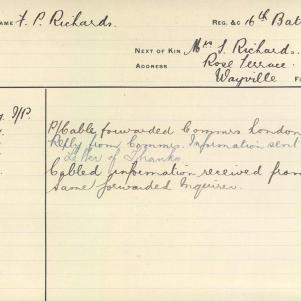 NAME F. P. Richards. REG. &C 16th Bat
NEXT OF KIN Mrs S. Richards
ADDRESS Rose Terrace
Wayville
P/Cable forwarded Commrs London
Reply from Commrs. Information sent
Letter of Thanks
Cabled information received from
same forwarded Inquirer.